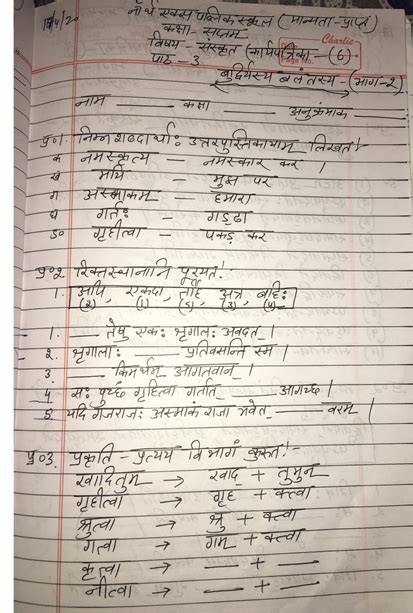 17/4/20
नॉर्थ एक्स पब्लिक स्कूल (मान्यता-प्राप्त)
कक्षा- सप्तम
विषय- संस्कृत (कार्यपत्रिका - (6)
पाठ - 3
Charlie
Page No.
बुद्धिर्यस्य बलं तस्य - (भाग-2)
नाम ——— कक्षा ——— अनुक्रमांक ———
प्र०1. निम्न शब्दार्था: उत्तरपुस्तिकायाम् लिखत।
क नमस्कृत्य – नमस्कार कर।
ख मयि – मुझ पर
ग अस्माकम् – हमारा
घ गर्त: – गड्ढा
ङ० गृहीत्वा – पकड़ कर
प्र०2. रिक्तस्थानानि पूरयत!-
1. अपि, एकदा, तर्हि, अत्र, बहि:
(2) (1) (5) (3) (4)
1. —— तेषु एक: शृगाल: अवदत्।
2. शृगाला: —— प्रतिवसन्ति स्म।
3. —— किमर्थम् आगतवान्।
4 स: पुच्छं गृहित्वा गर्तात् —— आगच्छ।
5. यदि गजराज: अस्माकं राजा भवेत् —— वरम्।
प्र०3. प्रकृति - प्रत्यय विभागं कुरुत!-
खादितुम् → खाद् + तुमुन्
गृहीत्वा → गृह् + क्त्वा
श्रुत्वा → श्रु + क्त्वा
गत्वा → गम् + क्त्वा
कृत्वा → — + —
नीत्वा → — + —